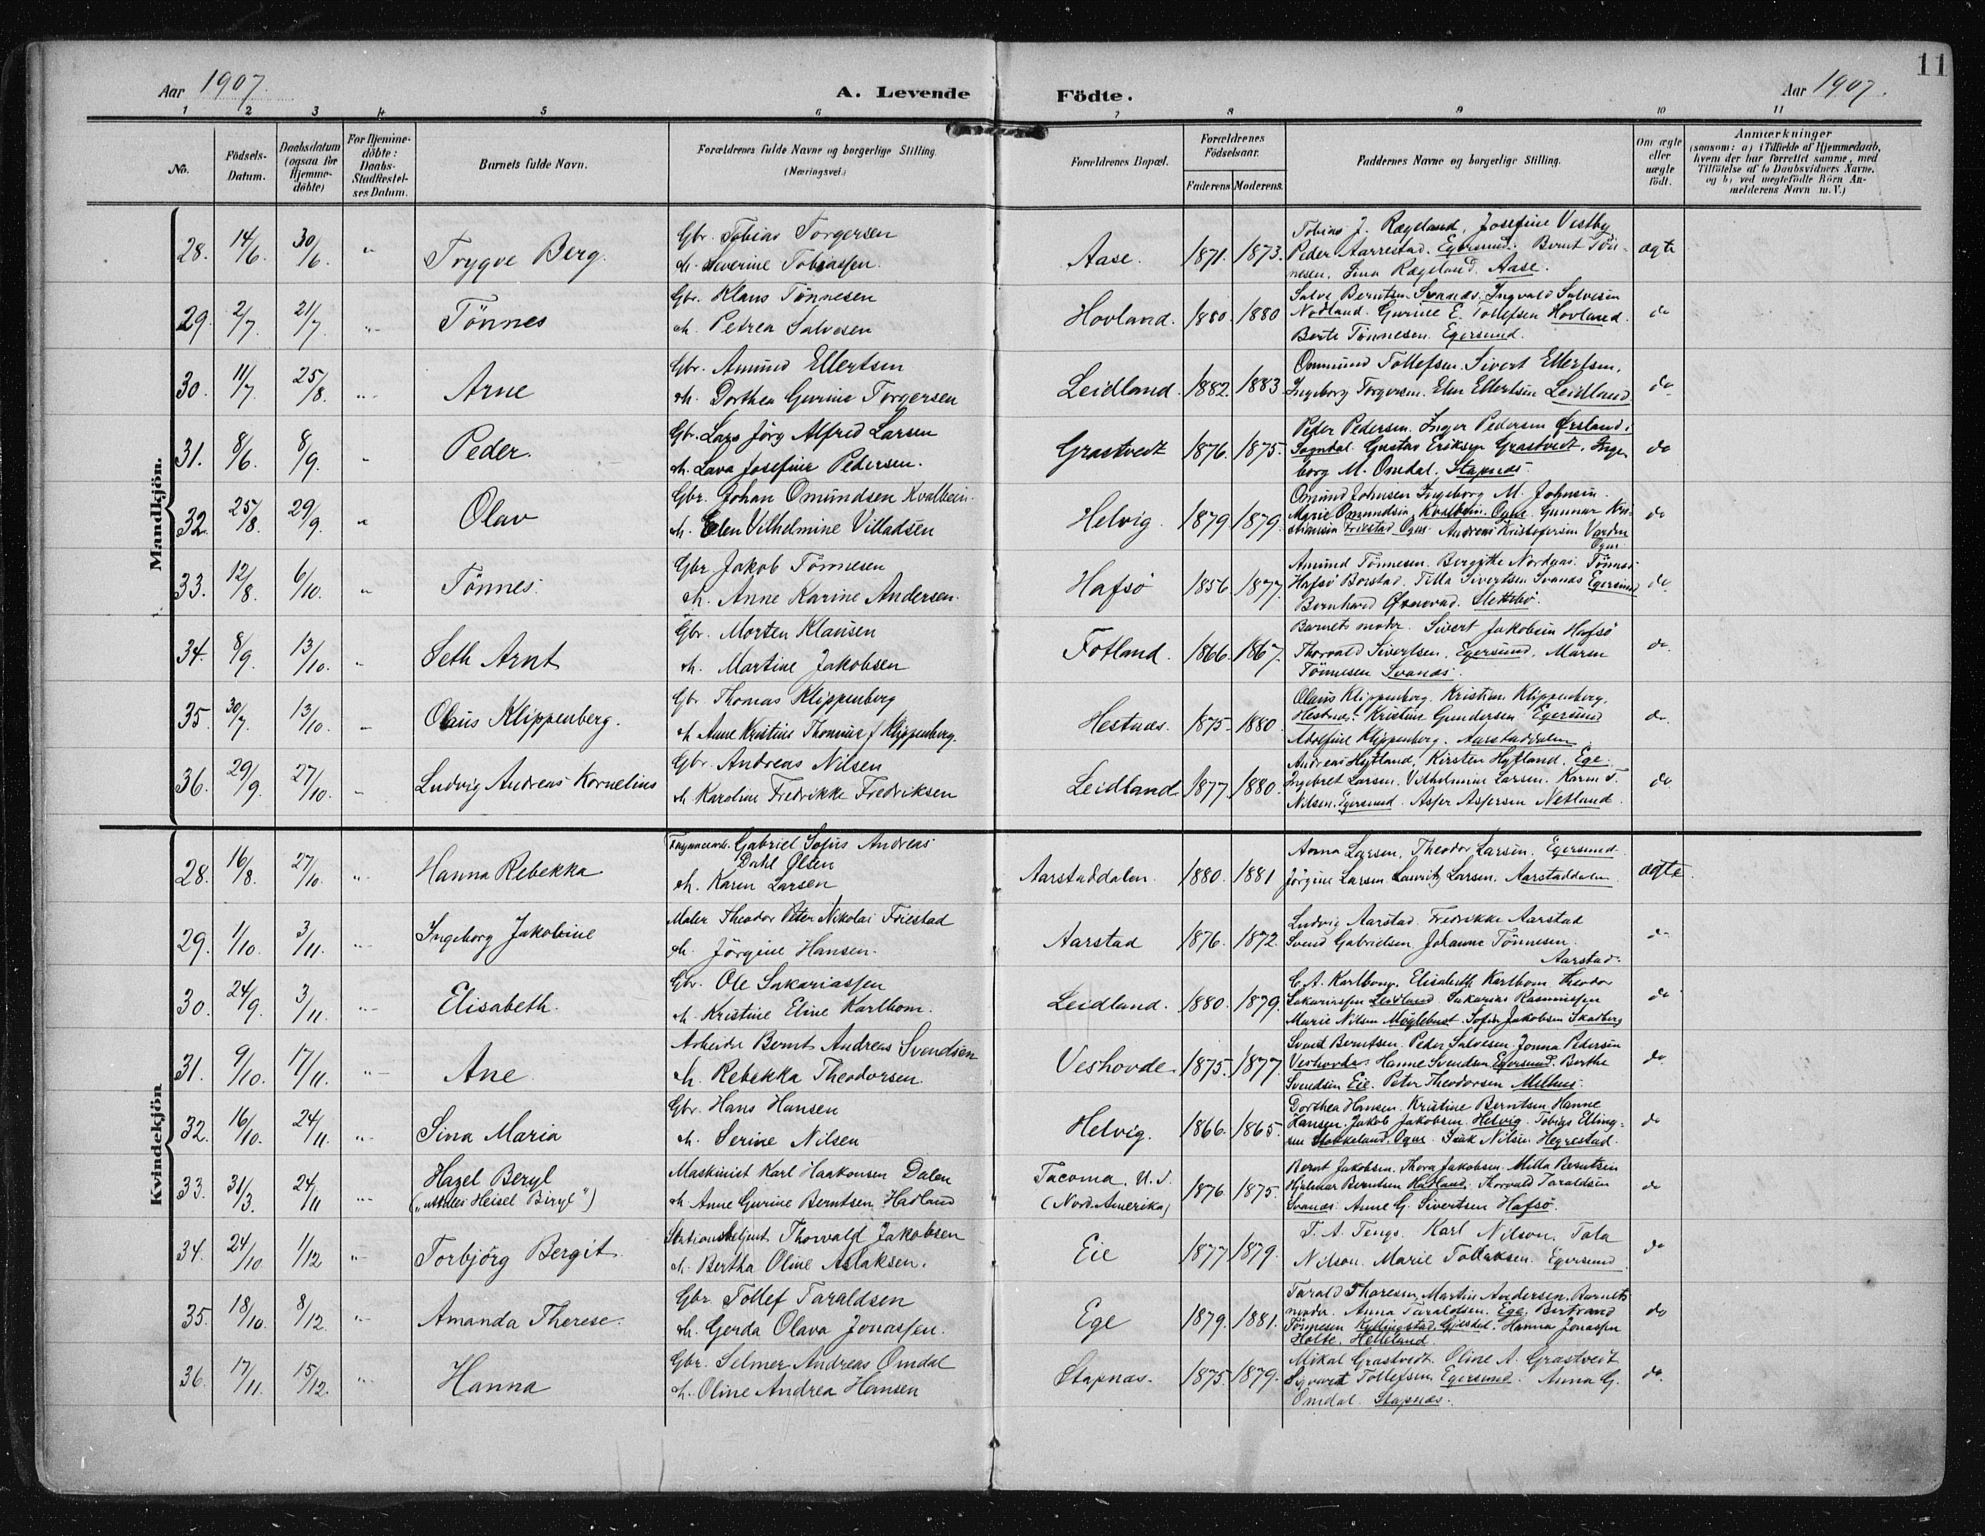 11
Aar 1907. A. Levende Födte. Aar 1907.
1 2 3 4 5 6 7 8 9 10 11
No. Födsels-Datum. Daabsdatum (ogsaa for Hjemme-döbte) For Hjemme-döbte: Daabs-Stadfæstel-ses Datum. Barnets fulde Navn. Forældrenes fulde Navne og borgerlige Stilling. (Næringsvei.) Forældrenes Bopæl. Forældrenes Födselsaar. Faderens Moderens. Faddernes Navne og borgerlige Stilling. Om ægte eller uægte födt. Anmærkninger
(saasom: a) i Tilfælde af Hjemmedaab, hvem der har forrettet samme, med Tilföielse af to Daabsvidners Navne. og b) ved uægtefödte Börn An-melderens Navn m. V.)
Mandkjön.
28. 14/6 30/6 " Trygve Berg. Gbr. Tobias Torgersen
h. Severine Tobiassen. Aase. 1871. 1873. Tobias J. Rægeland, Josefine Vestby
Peder Aarrestad. Egersund. Bernt Tön-
nesen, Sina Rægeland. Aase. ægte
29. 2/7 21/7 " Tönnes Gbr. Klaus Tönnesen
h. Petrea Salvesen Hovland. 1880. 1880 Salve Berntsen Svanæs, Ingvald Salvesen
Nodland. Gurine E. Tollefsen Hovland.
Berte Tönnesen. Egersund. do
30. 11/7 25/8 " Arne Gbr. Amund Ellertsen
h. Dorthea Gurine Torgersen Leidland. 1882. 1883 Ommund Tollefsen. Sivert Ellertsen,
Ingeborg Torgersen. Elen Ellertsen Leidland do
31. 8/6 8/9 " Peder. Gbr. Lars Jörg Alfred Larsen
h. Lava Josefine Pedersen. Grastvedt 1876. 1875. Peder Pedersen. Inger Pedersen Ørsland i
Sogndal. Gustav Eriksen Grastvedt. Inge-
borg M. Omdal. Stapnæs. do
32. 25/8 29/9 " Olav Gbr. Johan Omundsen Kvalbein.
h. Elen Vilhelmine Villadsen Helvig. 1879. 1879. Omund Johnsen Ingeborg M. Johnsen.
Marie Omundsen, Kvalbein. Ogne. Gunnar Kri-
stiansen Friestad Ogne. Andreas Kristofersen Varden
Ogne. do
33. 12/8 6/10. " Tönnes. Gbr. Jakob Tönnesen
h. Anne Karine Andersen. Hafsö 1856. 1877. Amund Tönnesen. Bergitte Nordgaa. Tönnes
Hafsö Borstad. Tilla Sivertsen Svanæs Egersund
Bernhard Slettebö. do.
34. 8/9 13/10. " Seth Arnt Gbr. Morten Klausen
h. Martine Jakobsen Fotland. 1866. 1867. Barnets moder. Sivert Jakobsen Hafsö
Thorvald Sivertsen, Egersund. Maren
Tönnesen Svanæs. do
35. 30/7 13/10. " Olaus Klippenberg. Gbr. Thomas Klippenberg
h. Anne Kristine Thomine f. Klippenberg. Hestnæs. 1875. 1880. Olaus Klippenberg. Kristine Klippenberg,
Hestnæs. Kristine Gundersen Egersund
Adolfine Klippenberg. Aarstaddalen do
36. 29/9 27/10. " Ludvig Andreas Kornelius Gbr. Andreas Nilsen
h. Karoline Fredrikke Fredriksen Leidland 1877. 1880. Andreas Hytland. Kirsten Hytland, Ege.
Ingebret Larsen. Vilhelmine Larsen. Karen T.
Nilsen. Egersund. Asper Aspersen Netland. do
Kvindekjön
28. 16/8 27/10. " Hanna Rebekka Gabriel Sofus Andreas
Dahl Olsen
h. Karen Larsen Aarstaddalen. 1880. 1881 Anna Larsen, Theodor Larsen, Egersund.
Jörgine Larsen Lauritz Larsen. Aarstaddalen ægte.
29. 1/10. 3/11. " Ingeborg Jakobine Maler Theodor Peter Nikolai Friestad
h. Jörgine Hansen. Aarstad 1876. 1872. Ludvig Aarstad. Fredrikke Aarstad
Svend Gabrielsen Johanne Tönnesen.
Aarstad. do
30. 24/9. 3/11. " Elisabeth. Gbr. Ole Sakariassen
h. Kristine Eline Karlbom. Leidland. 1880. 1879. C. A. Karlbom. Elisabeth Karlbom Theodor
Sakariassen Leidland Sakarias Rasmussen
Marie Nilsen Möglebust. Sofie Jakobsen Skadberg do
31. 9/10. 17/11. " Ane Arbeider Bernt Andreas Svendsen
h. Rebekka Theodorsen. Veshovde. 1875. 1877. Svend Berntsen. Peder Salvesen, Jonna Pedersen
Veshovde. Hanne Svendsen Egersund. Berthe
Svendsen Eie. Peter Theodorsen Melhus. do
32. 16/10. 24/11. " Sina Maria Gbr. Hans Hansen
h. Serine Nilsen Helvig. 1866. 1865. Dorthea Hansen. Kristine Berntsen. Hanne
Hansen. Jakob Jakobsen. Helvig. Tobias Elling-
sen Stokkeland. Ogne. Isak Nilsen Hegrestad. do
33. 31/3. 24/11 " Hazel Beryl
("uttales Heisel Biryl") Maskinist Karl Haakonsen Dalen
h. Anne Gurine Berntsen Hadland Tacoma. U. S.
(Nord-Amerika) 1876. 1875. Bernt Jakobsen. Thora Jakobsen. Milla Berntsen
Hjelmar Berntsen Hadland. Thorvald Taraldsen
Svanæs. Anne G. Sivertsen Hafsö. do
34. 24/10. 1/12 " Torbjörg Bergit. Stationsbetjent Thorvald Jakobsen
h. Bertha Oline Aslaksen. Eie 1877 1879. T. A. Tengs. Karl Nilson, Tala
Nilson. Marie Tollaksen. Egersund. do
35. 18/10. 8/12. " Amanda Therese. Gbr. Tollef Taraldsen
h. Gerda Olava Jonassen. Ege 1879. 1881. Tarald Thoresen, Martin Andersen. Barnets
moder. Anna Taraldsen. Ege. Bertrand
Tönnesen Kyllingstad Gjesdal. Hanna Jonassen
Holte. Helleland. do
36. 17/11. 15/12. " Hanna Gbr. Selmer Andreas Omdal
h. Oline Andrea Hansen Stapnæs. 1875. 1879. Mikal Grastvedt. Oline A. Grastvedt
Syvert Tollefsen Egersund. Anna G.
Omdal. Stapnæs. do.